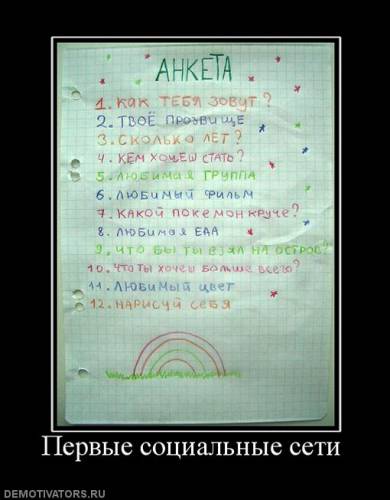 АНКЕТА
1. КАК ТЕБЯ ЗОВУТ?
2. ТВОЁ ПРОЗВИЩЕ
3. СКОЛЬКО ЛЕТ?
4. КЕМ ХОЧЕШ СТАТЬ?
5. ЛЮБИМАЯ ГРУППА
6. ЛЮБИМЫЙ ФИЛЬМ
7. КАКОЙ ПОКЕМОН КРУЧЕ?
8. ЛЮБИМАЯ ЕДА
9. ЧТО БЫ ТЫ ВЗЯЛ НА ОСТРОВ?
10. ЧТО ТЫ ХОЧЕШ БОЛЬШЕ ВСЕГО?
11. ЛЮБИМЫЙ ЦВЕТ
12. НАРИСУЙ СЕБЯ
Первые социальные сети
DEMOTIVATORS.RU